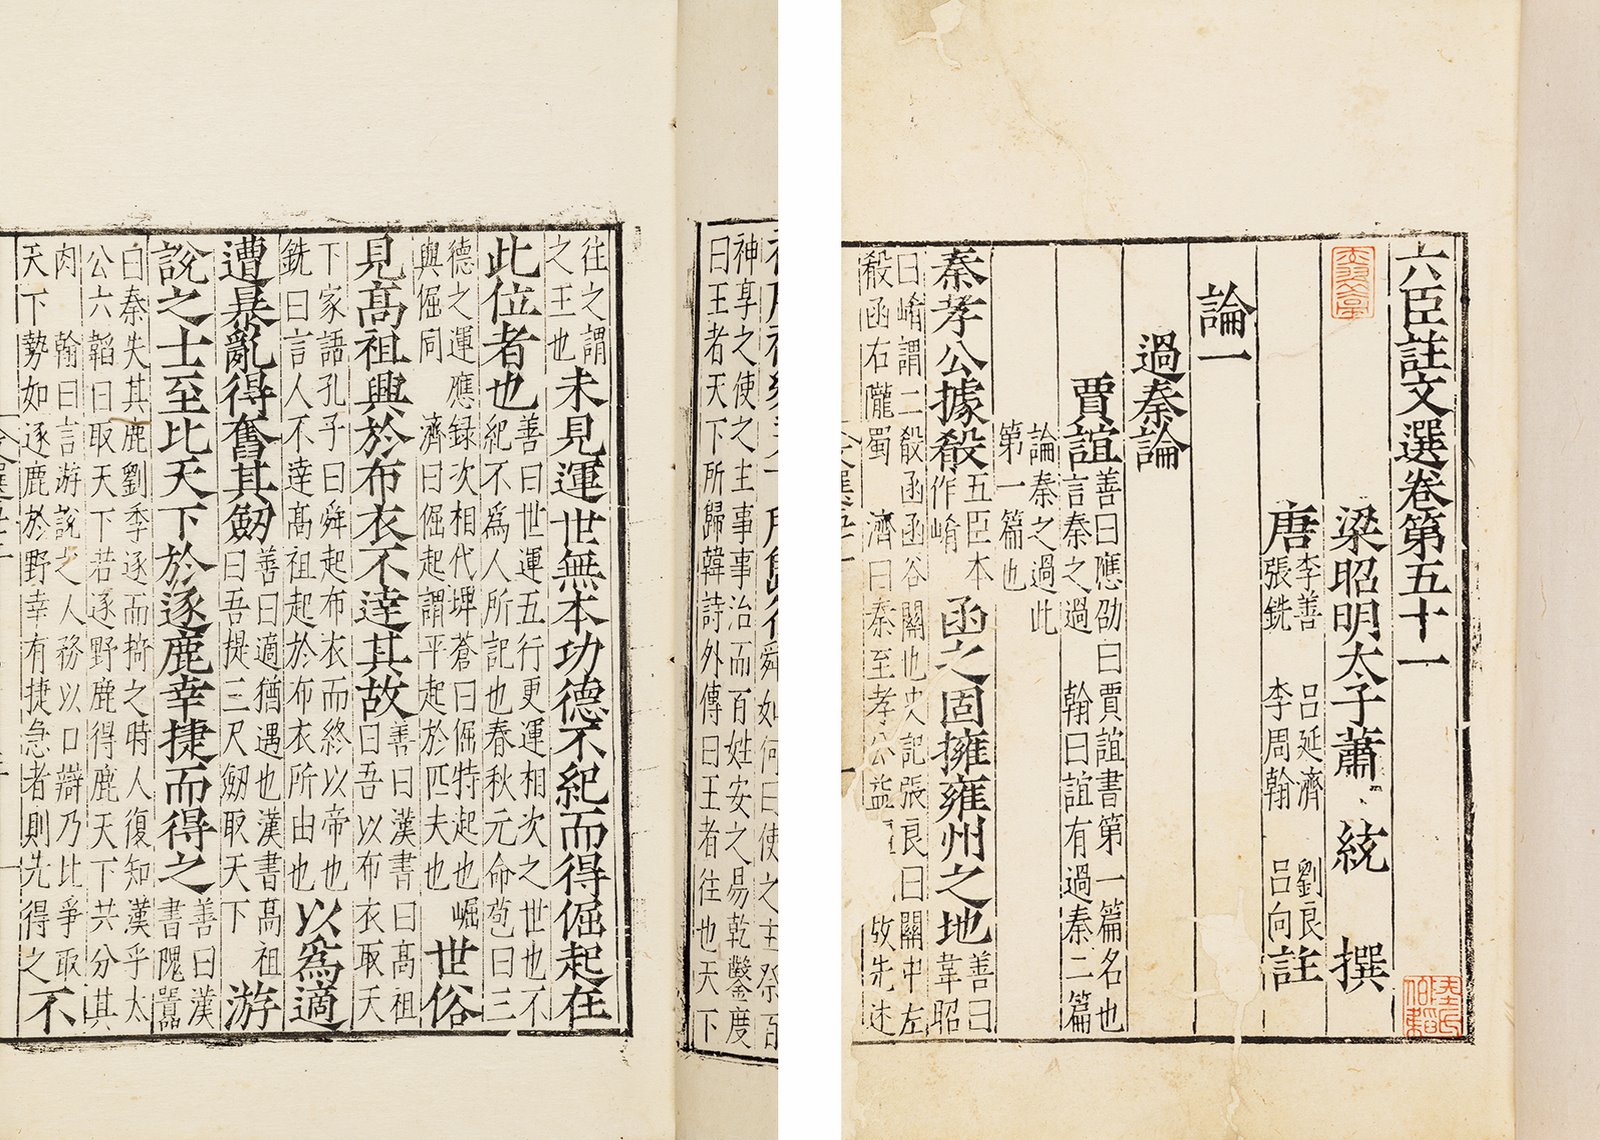 六臣註文選卷第五十一
梁昭明太子蕭統 撰
唐 李善 呂延濟 劉良
張銑 李周翰 呂向 註
論一
過秦論
賈誼 善曰應劭曰賈誼書第一篇名也
言秦之過 翰曰誼有過秦二篇
論秦之過此
第一篇也
秦孝公據殽 五臣本
作崤 函之固擁雍州之地 善曰
韋昭
曰崤謂二殽函函谷關也史記張良曰關中左
殽函右隴蜀 濟曰秦至孝公益
神享之使之主事事治而百姓安之易乾鑿度
曰王者天下所歸韓詩外傳曰王者往也天下
往之謂
之王也 未見運世無本功德不紀而得倔起在
此位者也 善曰世運五行更運相次之世也不
紀不爲人所記也春秋元命苞曰三
德之運應録次相代埤蒼曰倔特起也 崛
與倔同 濟曰倔起謂平起於匹夫也 世俗
見高祖興於布衣不逹其故 善曰漢書曰高祖
曰吾以布衣取天
下家語孔子曰舜起布衣而終以帝也
銑曰言人不逹高祖起於布衣所由也 以爲適
遭暴亂得奮其劒 善曰適猶遇也漢書高祖
曰吾提三尺劒取天下 游
說之士至比天下於逐鹿幸捷而得之 善曰漢
書隗囂
曰秦失其鹿劉季逐而掎之時人復知漢乎太
公六韜曰取天下若逐野鹿得鹿天下共分其
肉 翰曰言游說之人務以口辯乃比爭取
天下勢如逐鹿於野幸有捷急者則先得之 不